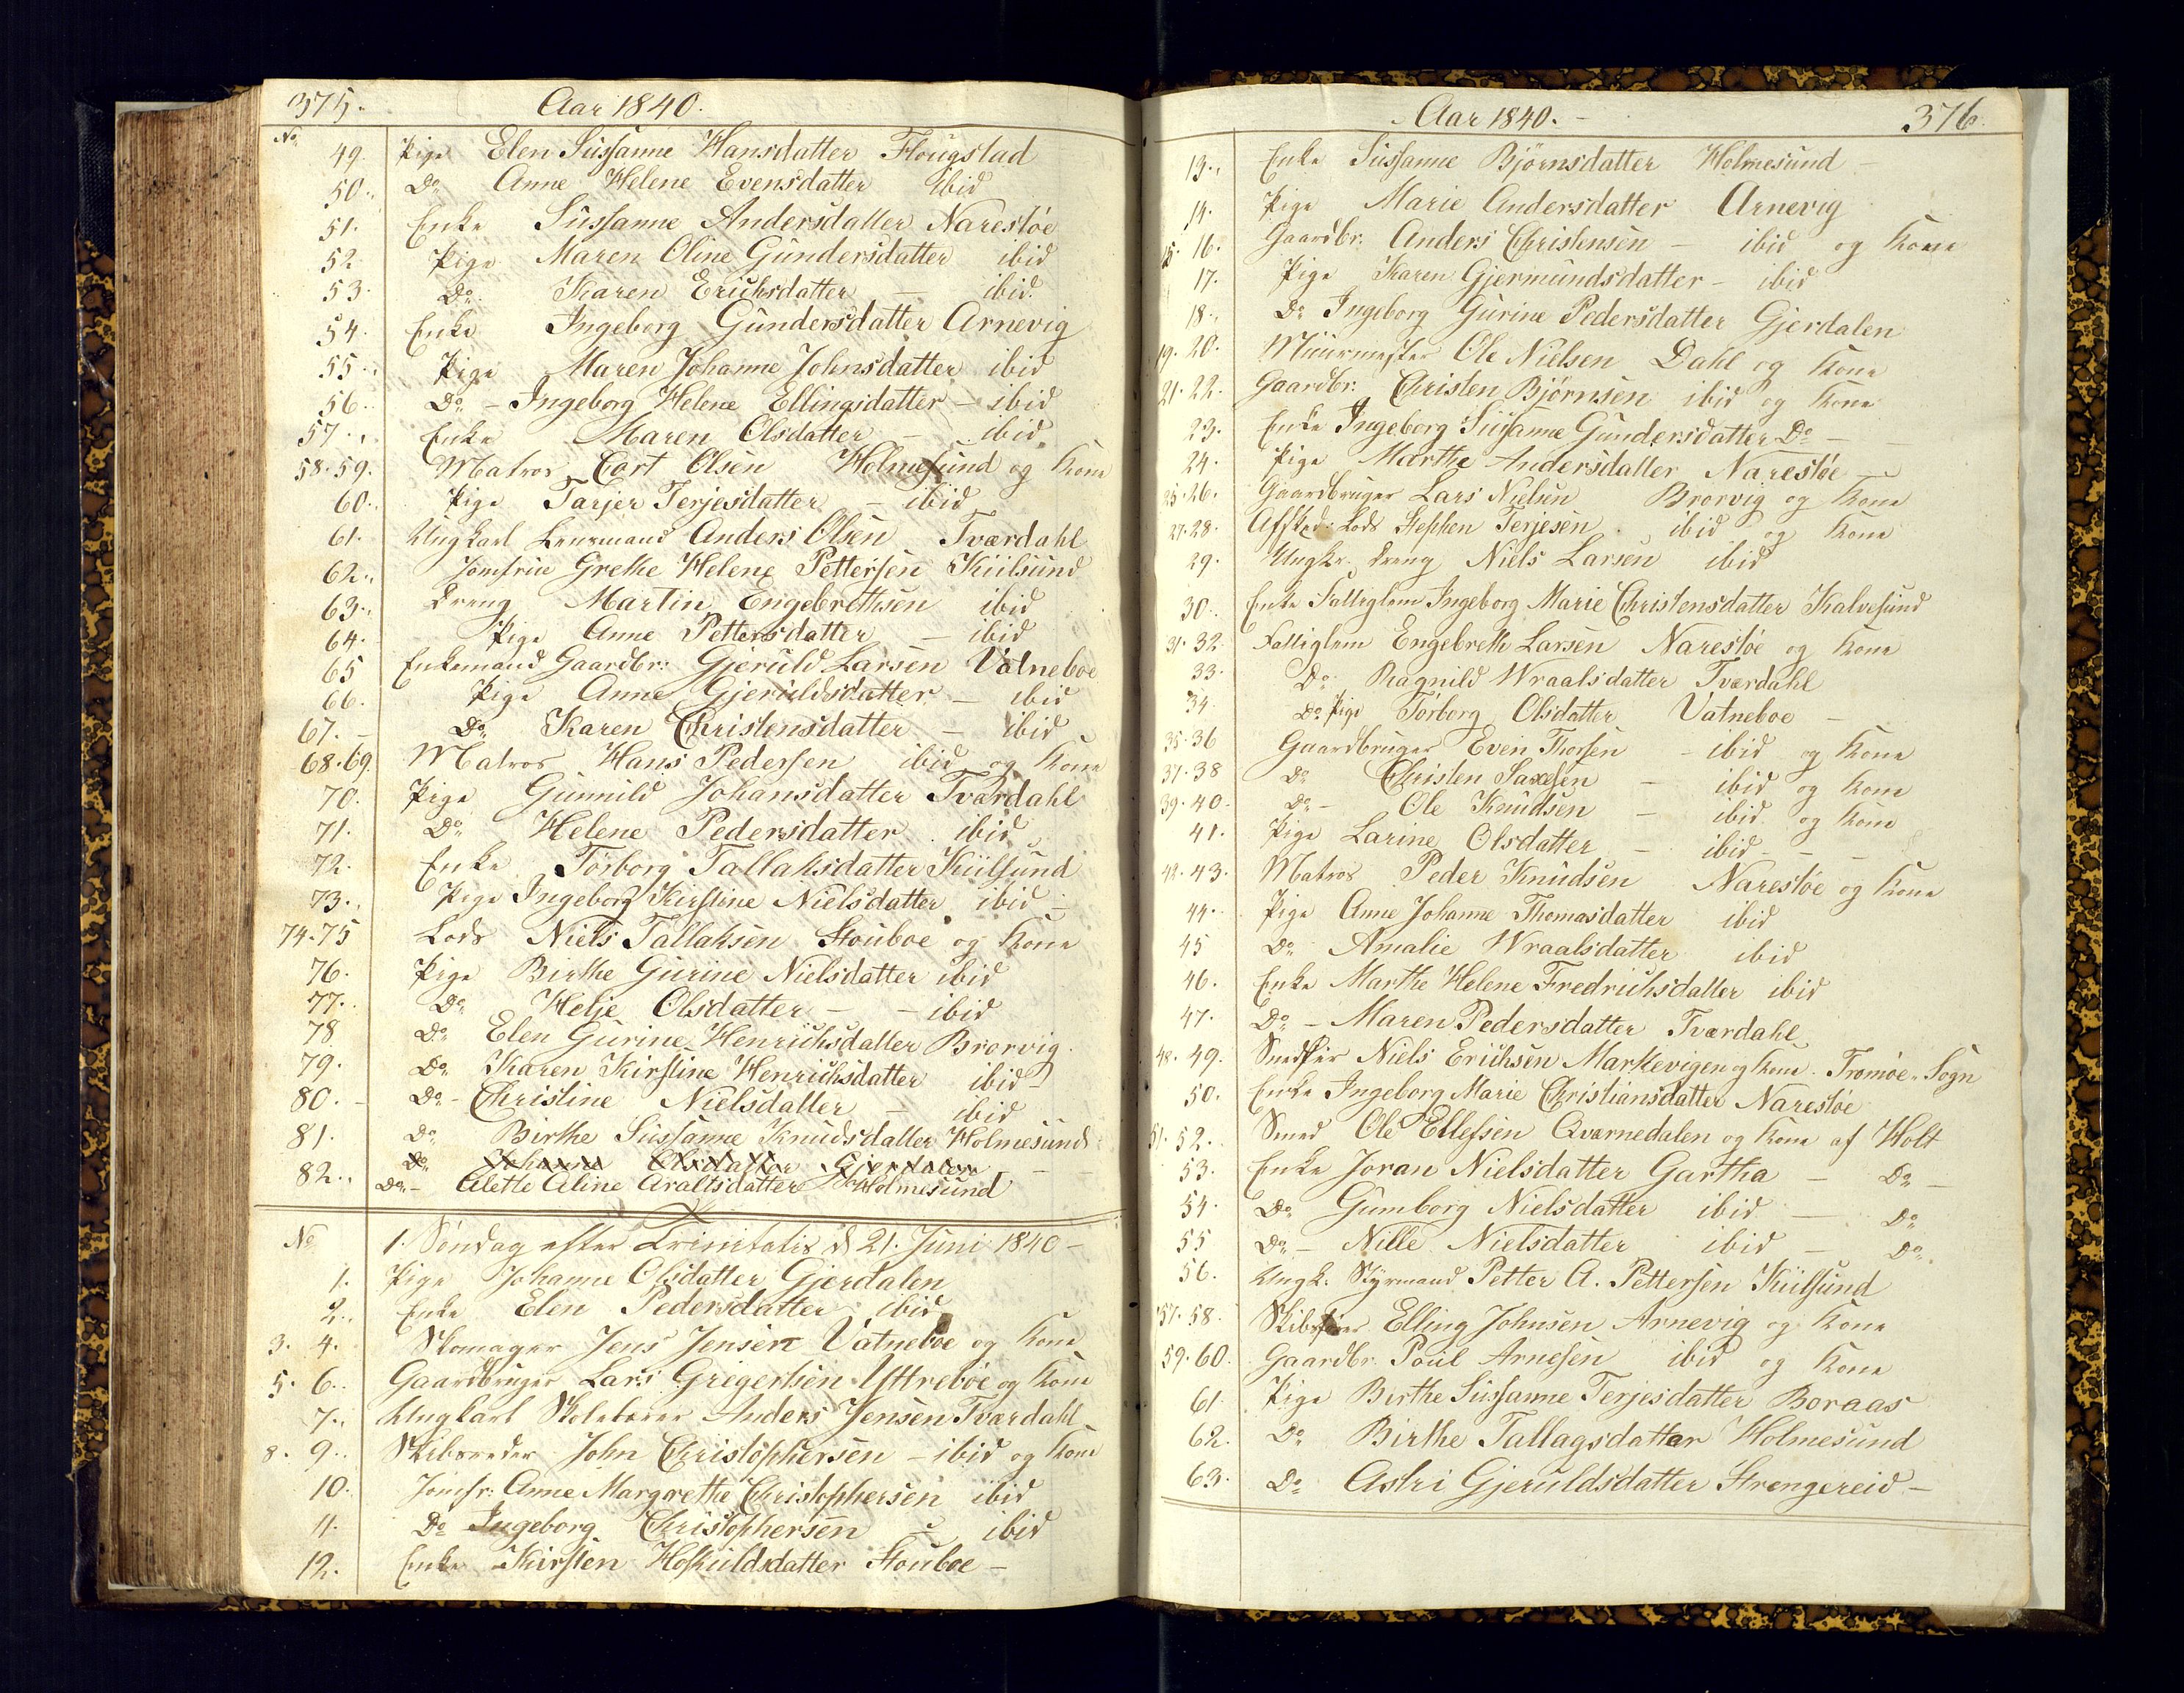 375.
Aar 1840.
No
49. Pige Elen Sussanne Hansdatter Flougstad
50. Do Anne Helene Evensdatter ibid
51. Enke Sussanne Andersdatter Narestøe
52. Pige Maren Oline Gundersdatter ibid
53. Do Karen Erichsdatter — ibid.
54. Enke Ingeborg Gundersdatter Arnevig
55. Pige Maren Johanne Johnsdatter ibid
56. Do – Ingeborg Helene Ellingsdatter – ibid
57. Enke Maren Olsdatter – ibid
58.59. Matros Cort Olsen Holmesund og Kone
60. Pige Tarjer Terjesdatter – ibid
61. Ungkarl Lensmand Anders Olsen Tværdahl
62. Jomfrue Grethe Helene Pettersen Kiilsund
63. Dreng Martin Engebrethsen ibid
64. Pige Anne Pettersdatter – ibid
65 Enkemand Gaardbr: Gjeruld Larsen Vatneboe
66. Pige Anne Gjeruldsdatter – ibid
67. – Do Karen Christensdatter – ibid
68.69. Matros Hans Pedersen ibid og Kone
70. Pige Gunnild Johansdatter Tværdahl
71. Do Helene Pedersdatter ibid
72. Enke Torborg Tallaksdatter Kiilsund
73. Pige Ingeborg Kirstine Nielsdatter ibid –
74.75 Lods Niels Tallaksen Stouboe og Kone
76. Pige Birthe Gurine Nielsdatter ibid
77. Do Helje Olsdatter – – ibid
78 Do Elen Gurine Henrichsdatter Brorvig.
79. Do Karen Kirstine Henrichsdatter ibid –
80. – Do – Christine Nielsdatter – ibid
81. Do Birthe Sussanne Knudsdatter Holmesund
Do Johanne Olsdatter Gjerdalen
82. Do – Alette Aline Araltsdatter Holmesund
No 1. Søndag efter Trinitatis d 21. Juni 1840 –
1. Pige Johanne Olsdatter Gjerdalen
2. Enke Elen Pedersdatter ibid
3. 4. Skomager Jens Jensen Vatneboe og Kone
5. 6. Gaardbruger Lars Gregersen Yttreboe og Kone
7. Ungkarl Skolelærer Anders Jensen Tværdahl
8. 9. Skibsreder John Christophersen – ibid og Kone
10. Jomfr: Anne Margrethe Christophersen ibid
11. Do Ingeborg Christophersen – ibid
12. Enke Kirsten Hoskuldsdatter Stouboe –
Aar 1840. –
376.
13. Enke Sussanne Bjørnsdatter Holmesund –
14. Pige Marie Andersdatter Arnevig
15. 16. Gaardbr. Anders Christensen – ibid og Kone
17. Pige Karen Gjermundsdatter – ibid
18. Do Ingeborg Gurine Pedersdatter Gjerdalen
19. 20. Muurmester Ole Nielsen Dahl og Kone
21.22. Gaardbr: Christen Bjørnsen ibid og Kone
23. Enke Ingeborg Susanne Gundersdatter Do –
24. Pige Marthe Andersdatter Narestøe –
25.26. Gaardbruger Lars Nielsen Brorvig og Kone
27.28. Afsked: Lods Stephen Terjesen ibid og Kone
29. Ungkr. Dreng Niels Larsen ibid
30. Enke Fattiglem Ingeborg Marie Christensdatter Kalvesund
31.32 Fattiglem Engebreth Larsen Narestøe og Kone
33. Do Ragnild Wraalsdatter Tværdahl
34. Do Pige Torborg Olsdatter Vatneboe –
35.36 Gaardbruger Even Thorsen – ibid og Kone
37.38 Do Christen Saxesen – ibid og Kone
39.40. Do – Ole Knudsen – ibid og Kone
41. Pige Larine Olsdatter – ibid – – –
42.43. Matros Peder Knudsen Narestøe og Kone
44. Pige Anne Johanne Thomasdatter ibid
45 Do Amalie Wraalsdatter ibid
46. Enke Marthe Helene Fredrichsdatter ibid
47. Do – Maren Pedersdatter Tværdahl
48. 49. Niels Erichsen Markevigen og Kone. Tromøe Sogn
50. Enke Ingeborg Marie Christiansdatter Narestøe
51. 52. Smed Ole Ellefsen Qværnedalen og Kone af Holt
53. Enke Joran Nielsdatter Gartha – Do –
54. Do Gumborg Nielsdatter ibid — Do
55 Do – Nille Nielsdatter ibid – Do
56. Ungk. Styrmand Petter A. Pettersen Kiilsund
57.58. Skibsfører Elling Johnsen Arnevig og Kone
59.60. Gaardbr. Poul Arnesen ibid og Kone
61. Pige Birthe Sussanne Terjesdatter Boraas
62. Do Birthe Tallagsdatter Holmesund
63. Do Astri Gjeruldsdatter Strengereid –